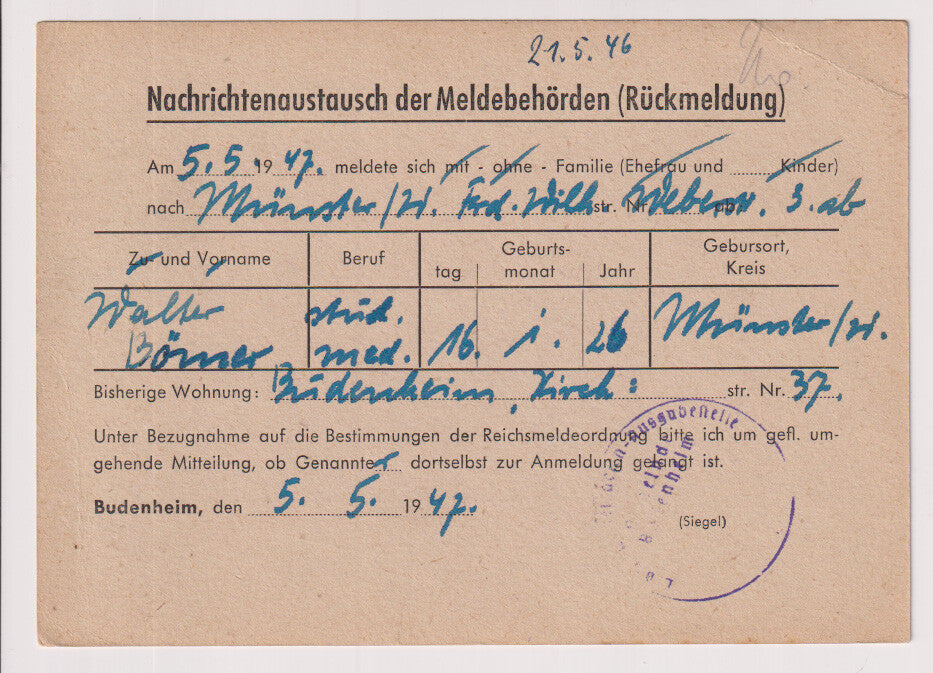 21.5.46
Nachrichtenaustausch der Meldebehörden (Rückmeldung)
Am 5.5.1947. meldete sich mit - ohne - Familie (Ehefrau und ........ Kinder)
nach Münster/W. Ferd. Wilh str. Nr. Weberstr. 3. ab
Zu- und Vorname Beruf Geburts- Gebursort,
tag monat Jahr Kreis
Walter stud. Münster/W.
Börner med. 16. 1. 26
Bisherige Wohnung: Budenheim, Kirch: str. Nr. 37.
Unter Bezugnahme auf die Bestimmungen der Reichsmeldeordnung bitte ich um gefl. um-
gehende Mitteilung, ob Genannter dortselbst zur Anmeldung gelangt ist.
Budenheim, den 5. 5. 1947.
(Siegel)